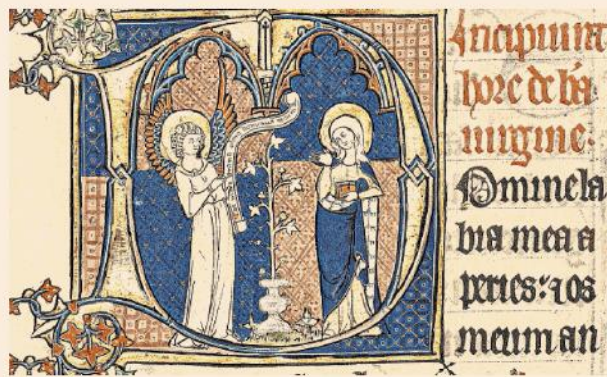 Incipiunt
hore de bā
uirgine.
DOmine la
bia mea a
peries: ⁊ os
meum an